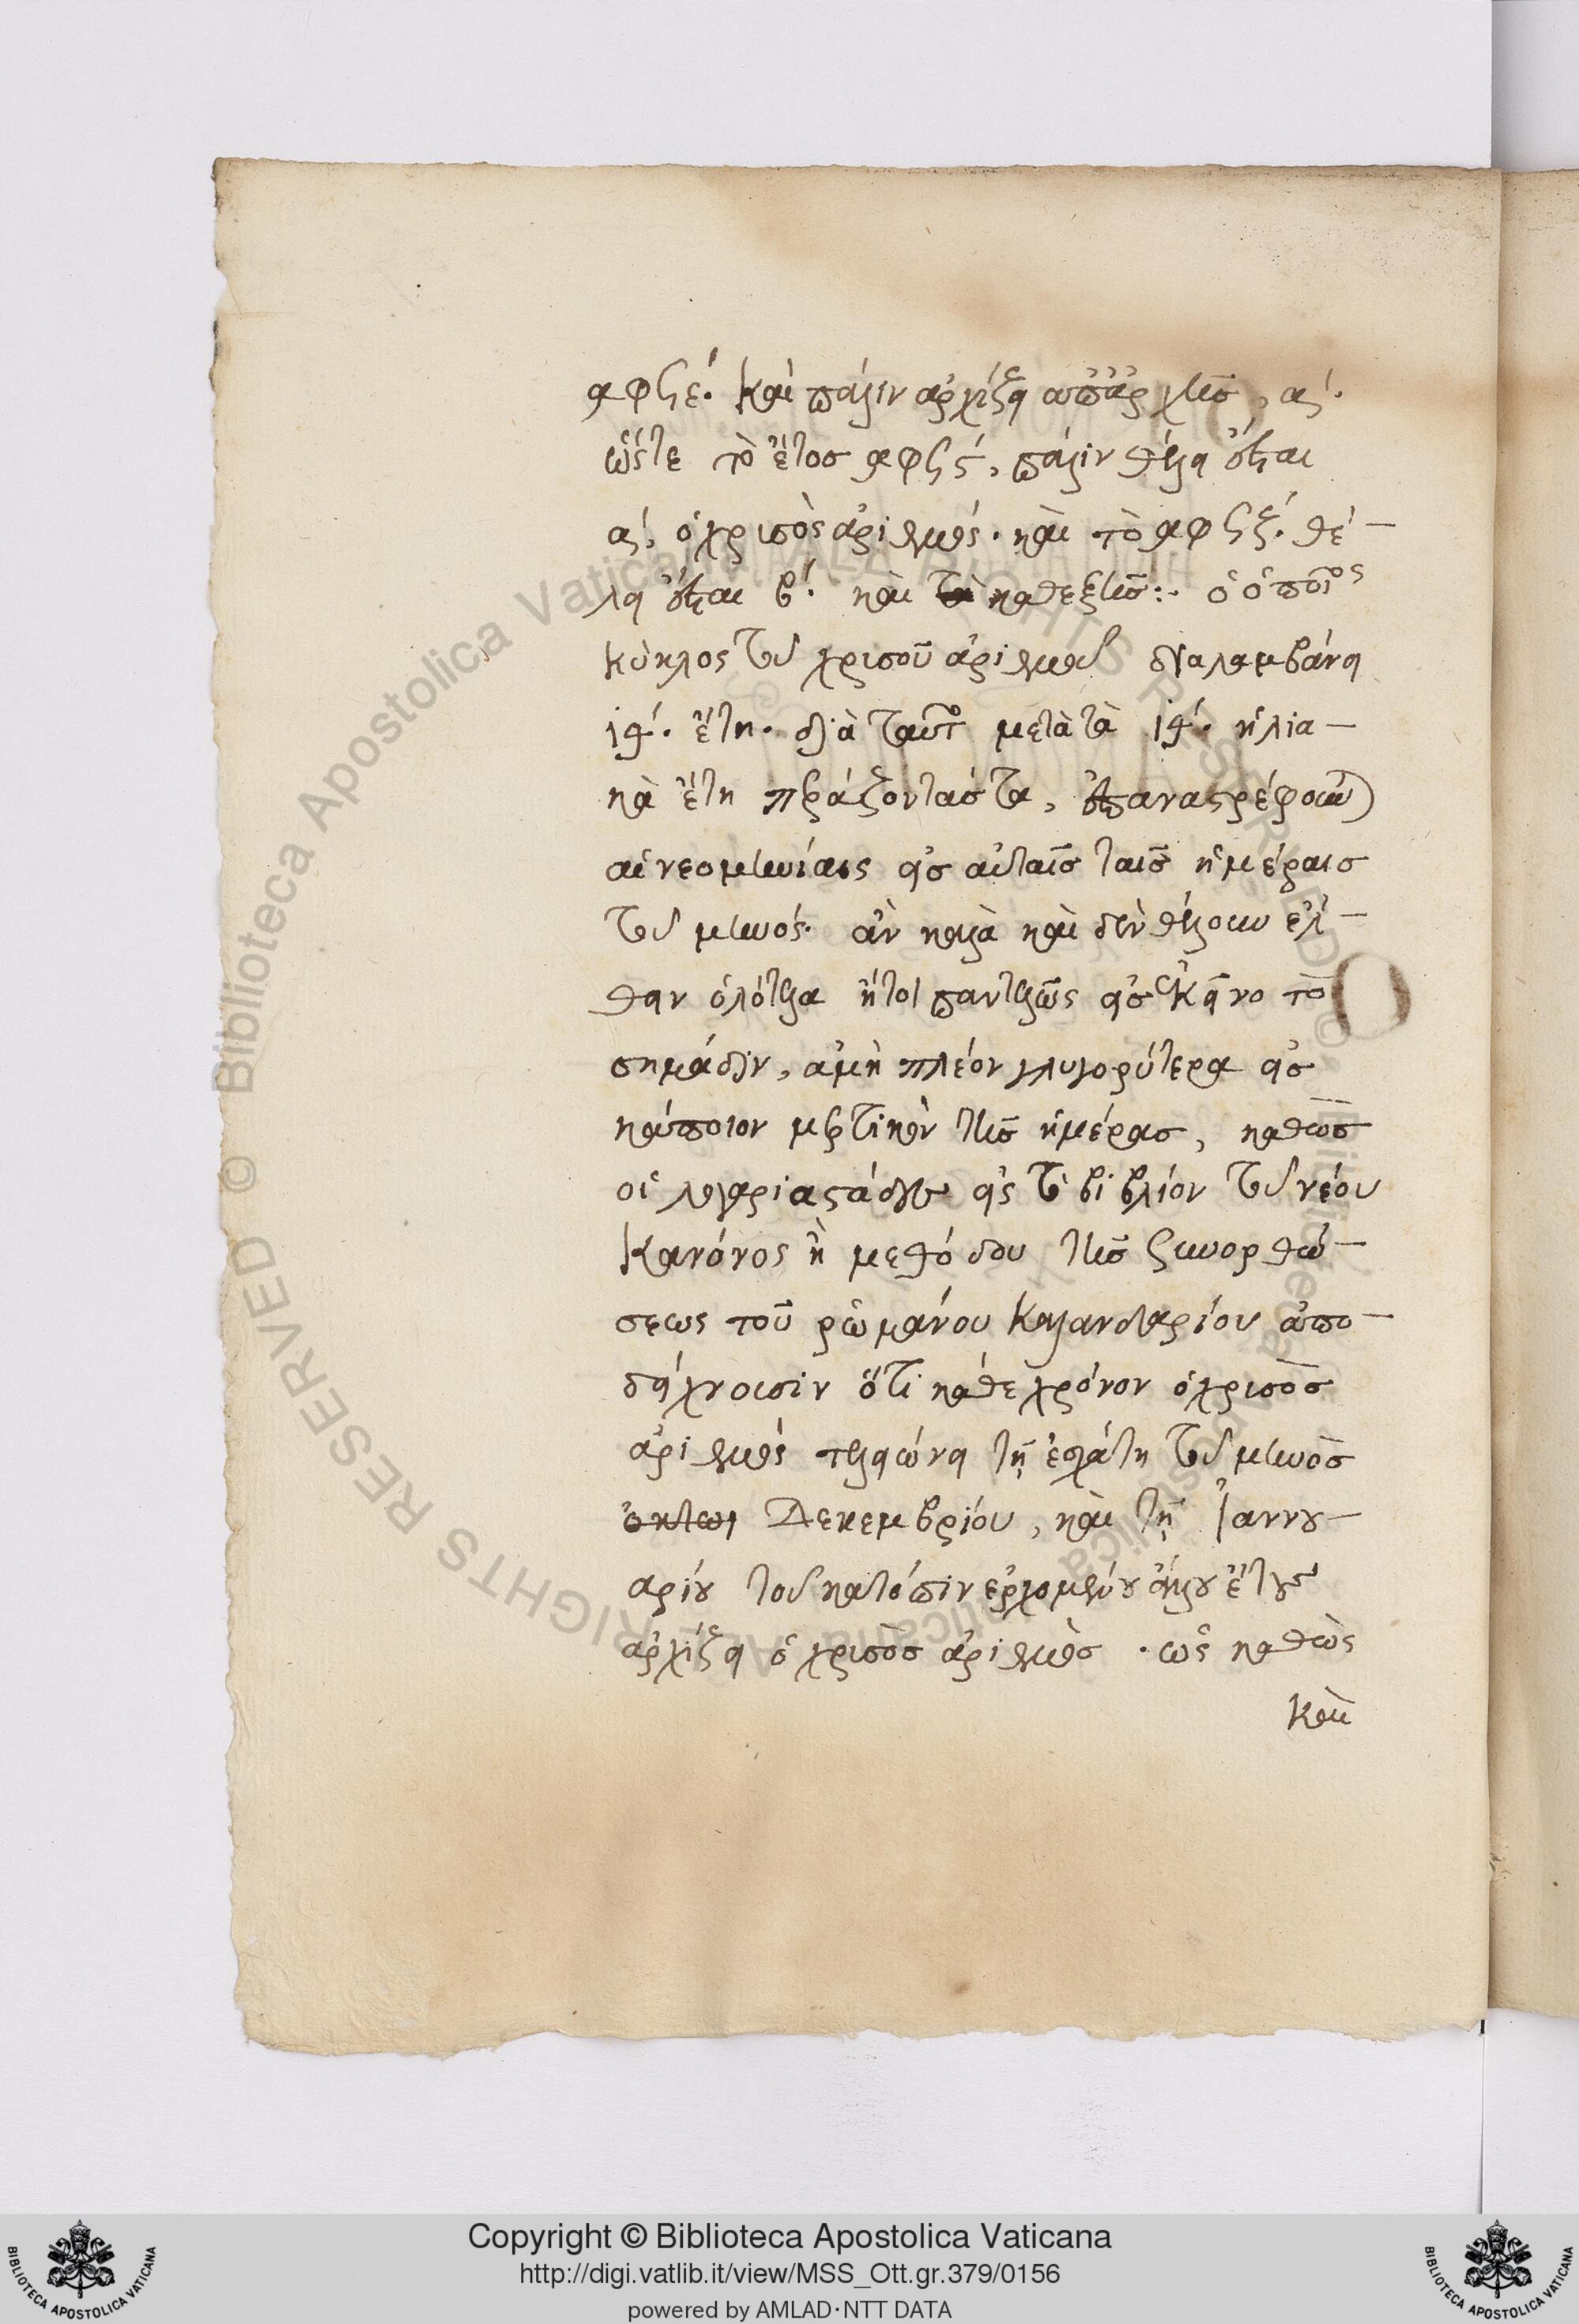 αφϟε΄. Καὶ πάλιν ἀρχίζει ἀπ' ἀρχῆσ, α΄.
ὥστε τὸ ἔτοσ αφϟς΄, πάλιν θέλει ἔσται
α΄, ὁ χρισὸς ἀριθμός. καὶ τὸ αφϟζ΄. θέ-
λει ἔσται β΄. καὶ καθεξῆσ:. ὁ ὁποῖος
κύκλος τοῦ χρισοῦ ἀριθμοῦ διαλαμβάνει
ιθ΄. ἔτη. διὰ ταῦτο μετὰ τὰ ιθ΄. ἡλια-
κὰ ἔτη πράζοντάς τα, ἐπαναστρέφουν
αἱ νεομηνίαις εἰσ αὐταῖσ ταῖσ ἡμέραισ
τοῦ μηνός. ἂν καλὰ καὶ δὲν θέλουν ἐλ-
θειν ὁλότελα ἤτοι παντελῶς εἰσ ἐκεῖνο τὸ
σημάδιν, ἀμὴ πλέον γλυγορύτερα εἰσ
κάποιον μερτικὸν τῆσ ἡμέρασ, καθὼσ
οἱ λογαριαστάδες εἰς τὸ βιβλίον τοῦ νέου
Κανόνος ἢ μεθόδου τῆσ συνορθώ-
σεως τοῦ ῥωμάνου Καλανδαρίου ἀπο-
δείχνουσιν ὅτι κάθε χρόνον ὁ χρισὸσ
ἀριθμὸς τελειώνει τῇ ἐσχάτῃ τοῦ μηνὸσ
Δεκεμβρίου, καὶ τῇ Ἰαννου-
αρίου τοῦ κατόπιν ἐρχομένου ἄλλου ἔτους
ἀρχίζει ὁ χρισὸσ ἀριθμὸσ. ὡς καθὼς
Καὶ
Copyright © Biblioteca Apostolica Vaticana
http://digi.vatlib.it/view/MSS_Ott.gr.379/0156
powered by AMLAD·NTT DATA
BIBLIOTECA APOSTOLICA VATICANA
BIBLIOTECA APOSTOLICA VATICANA